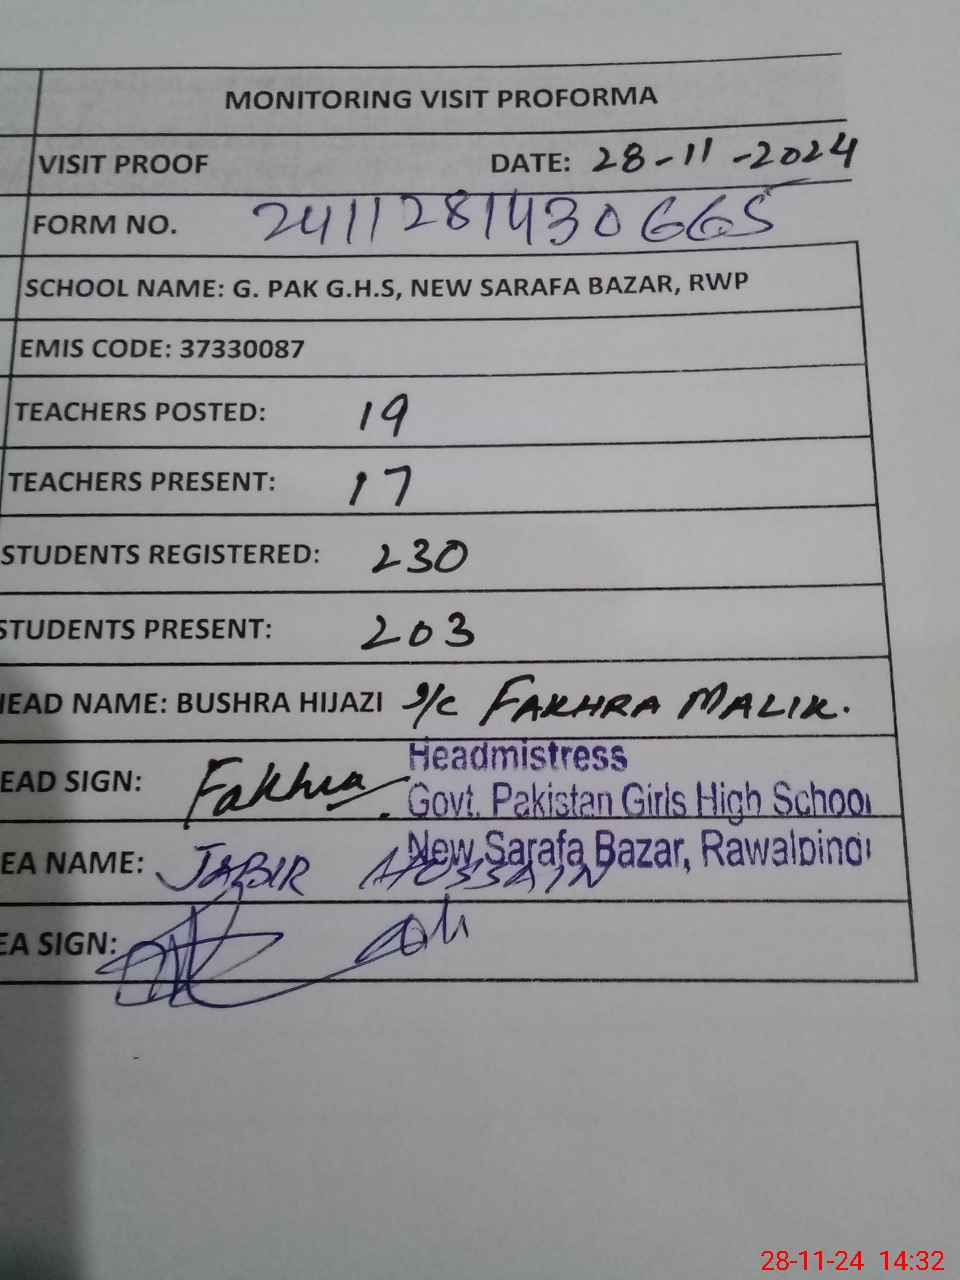 MONITORING VISIT PROFORMA
VISIT PROOF DATE: 28-11-2024
FORM NO. 2411281430665
SCHOOL NAME: G. PAK G.H.S, NEW SARAFA BAZAR, RWP
EMIS CODE: 37330087
TEACHERS POSTED: 19
TEACHERS PRESENT: 17
STUDENTS REGISTERED: 230
STUDENTS PRESENT: 203
HEAD NAME: BUSHRA HIJAZI I/C FAKHRA MALIK.
EAD SIGN: Fakhra
Headmistress
Govt. Pakistan Girls High School
New Sarafa Bazar, Rawalpindi
EA NAME: JABIR HOSSAIN
EA SIGN:
28-11-24 14:32